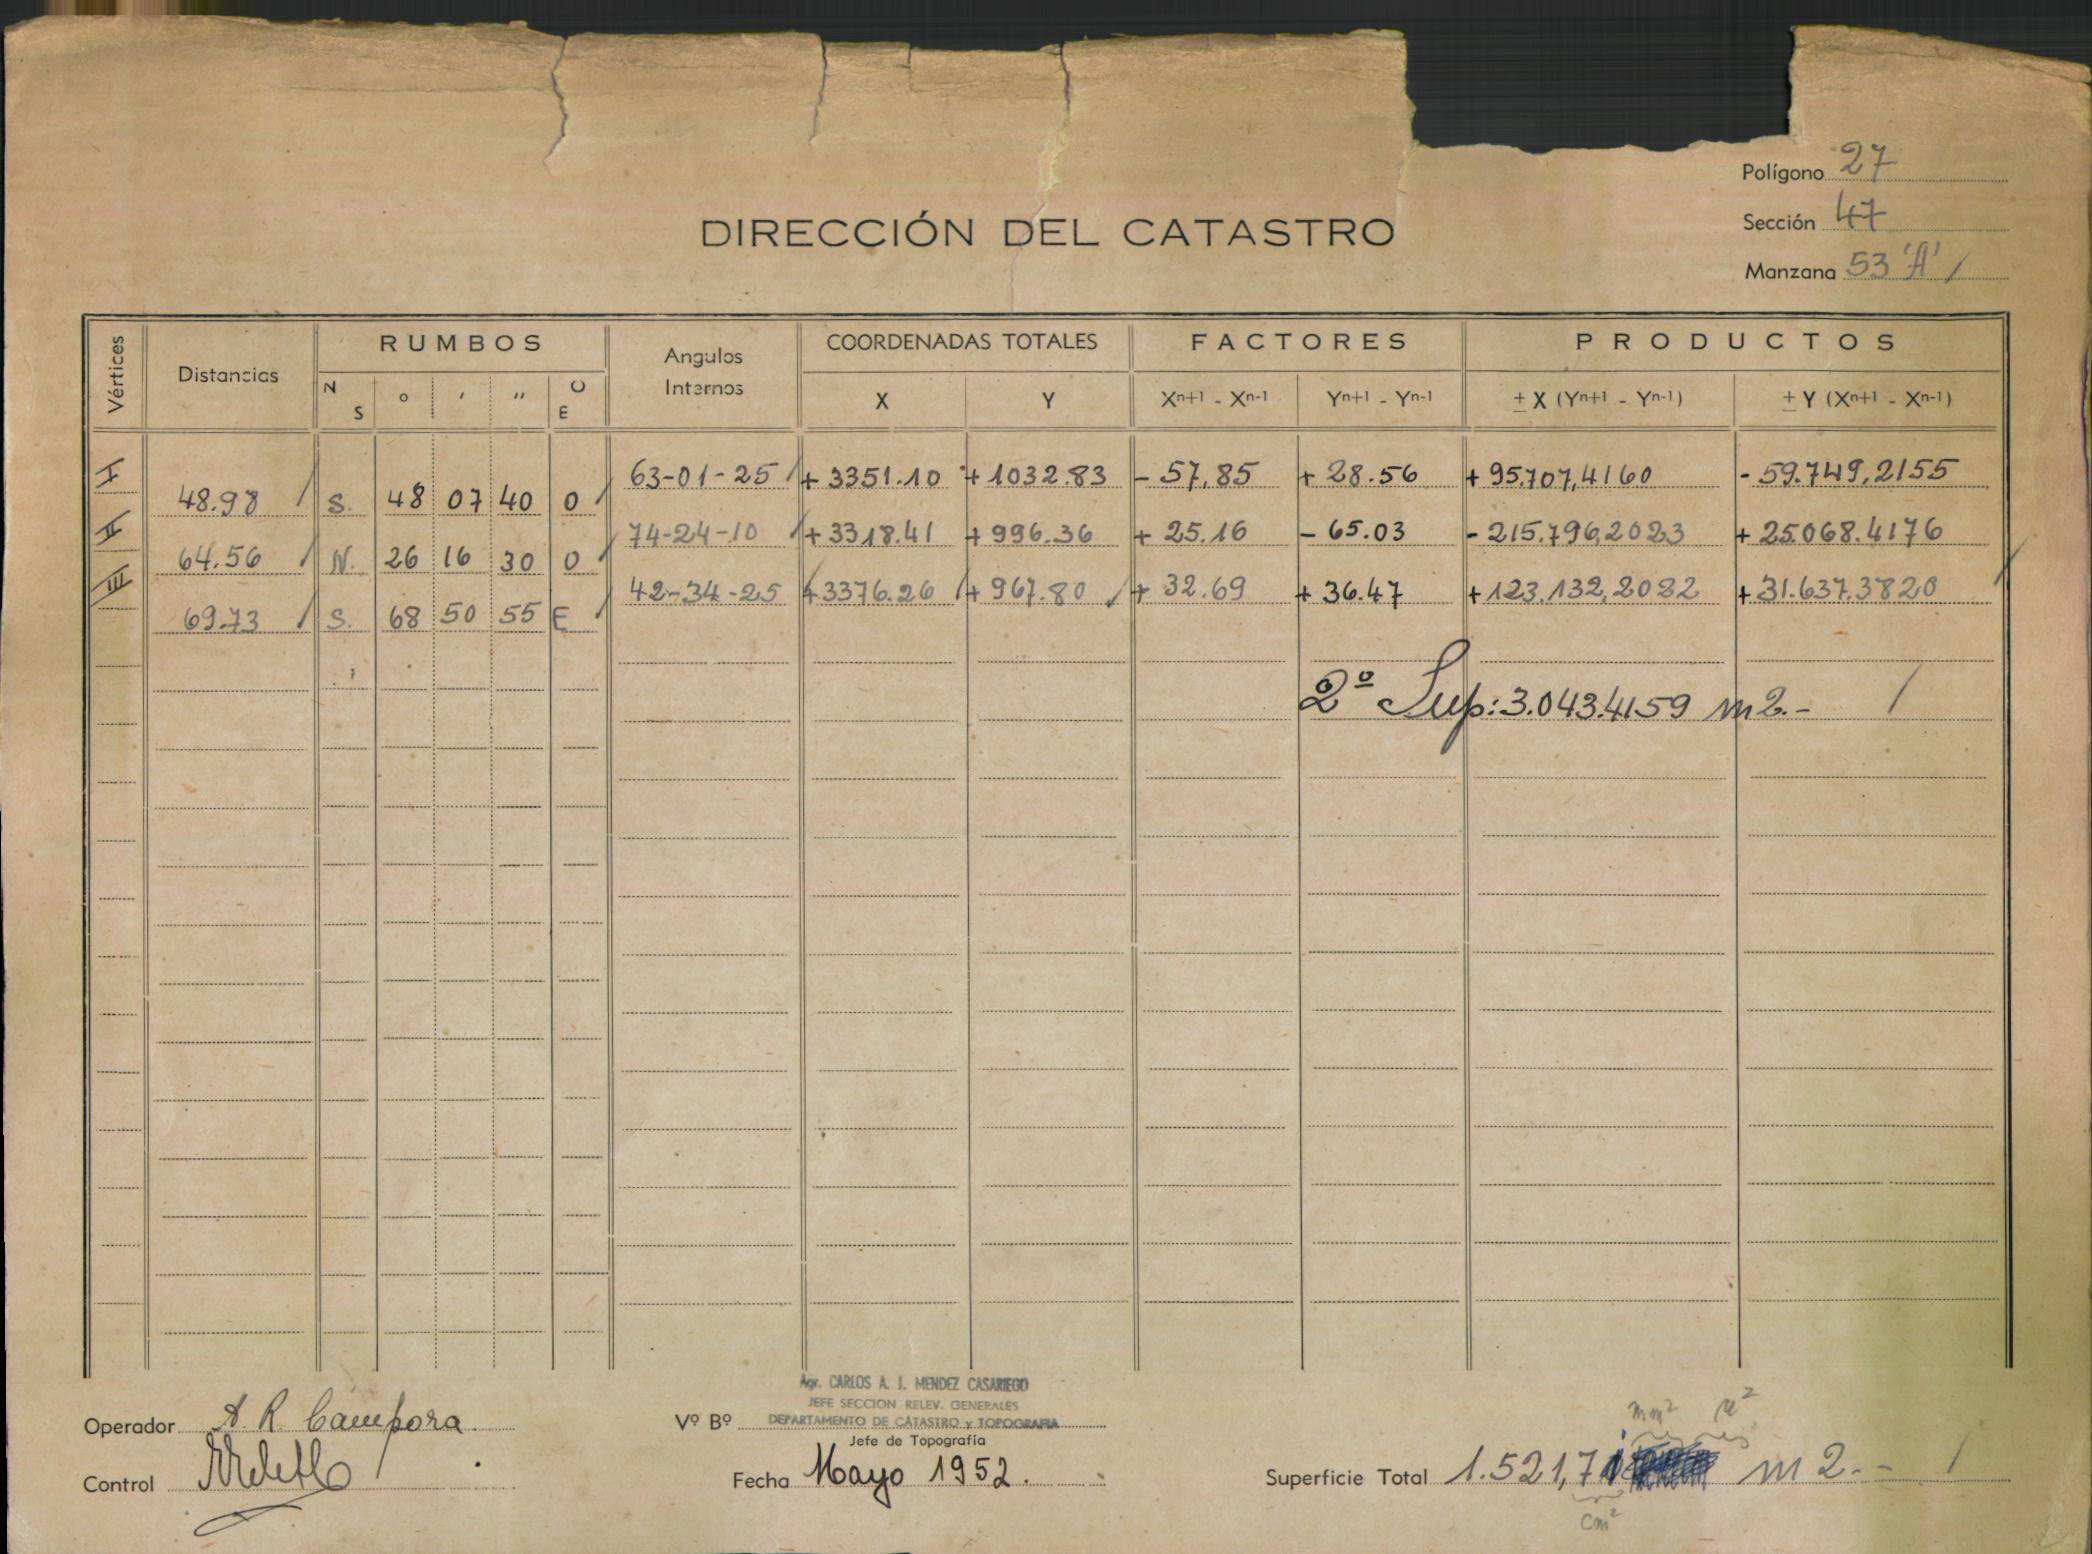 Polígono 27
Sección 47
Manzana 53 'A' /
DIRECCIÓN DEL CATASTRO
Vértices Distancias RUMBOS Angulos Internos COORDENADAS TOTALES FACTORES PRODUCTOS
N S ° ' '' O E X Y Xn+1 - Xn-1 Yn+1 - Yn-1 ± X (Yn+1 - Yn-1) ± Y (Xn+1 - Xn-1)
63-01-25 / + 3351.10 + 1032.83 - 57,85 + 28.56 + 95.707,4160 - 59.749,2155
48.98 / S. 48 07 40 O /
74-24-10 / + 3318.41 + 996.36 + 25.16 - 65.03 - 215.796,2023 + 25.068.4176
64.56 / N. 26 16 30 O /
42-34-25 / + 3376.26 / + 967.80 / + 32.69 + 36.47 + 123.132,2022 + 31.637,3820 /
69.73 / S. 68 50 55 E /
2º Sup: 3.043.4159 m2.- /
Agr. CARLOS A. J. MENDEZ CASARIEGO
JEFE SECCION RELEV. GENERALES
DEPARTAMENTO DE CATASTRO y TOPOGRAFIA
Operador A. R. Campora
Vº Bº
Jefe de Topografía
mm²
Control
Fecha Mayo 1952.
Superficie Total 1.521,7 m2.- /
cm²